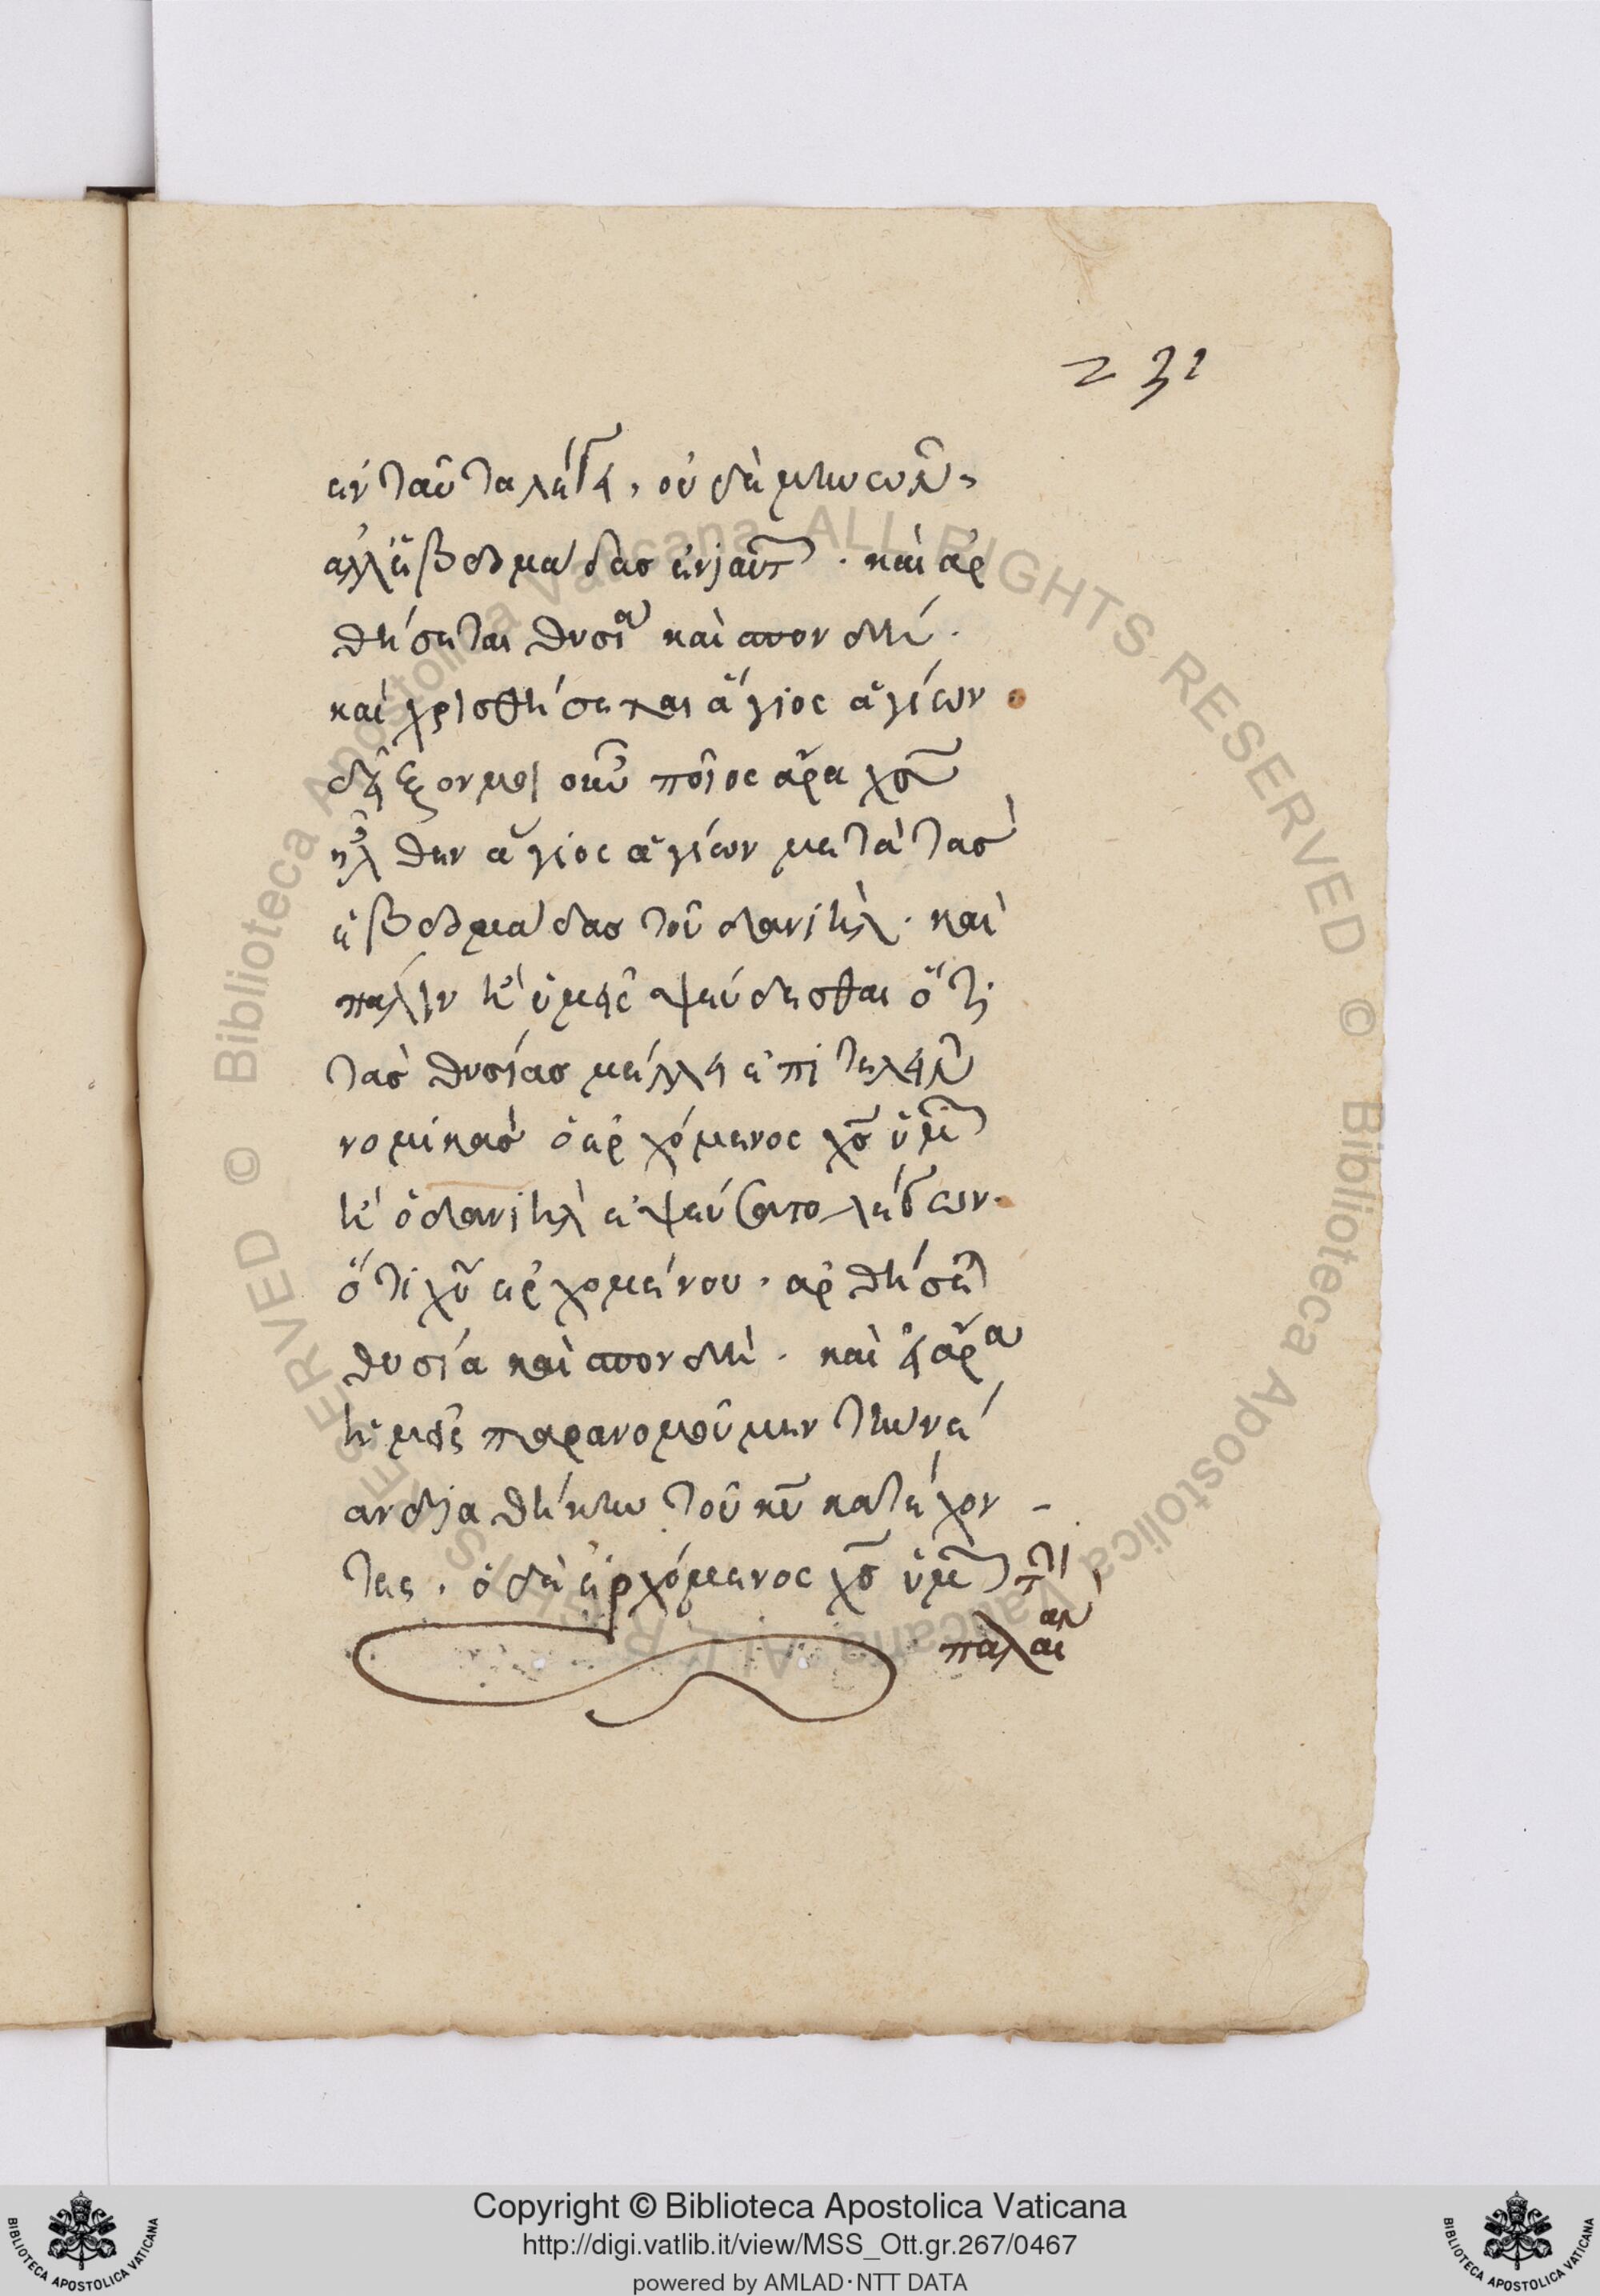 231
ἐνταῦτα λέγει, οὐ δὲ μηνῶν,
ἀλλ' ἑβδομάδας ἐνιαυτ. καὶ ἀρ
θήσεται θυσία καὶ σπονδή.
καὶ χρισθήσεται ἅγιος ἁγίων.
δεῖξόν μοι οὖν ποῖος ἄρα χς
ἦλθεν ἅγιος ἁγίων μετὰ τὰς
ἑβδομάδας τοῦ δανιήλ. καὶ
πάλιν ἢ ὑμεῖς ψεύδεσθαι ὅτι
τὰς θυσίας μέλλει ἐπιτελεῖν
νομικὰς ὁ ἐρχόμενος χς ὑμῶν
ἢ ὁ δανιὴλ ἐψεύσατο λέγων.
ὅτι χῦ ἐρχομένου, ἀρθήσεται
θυσία καὶ σπονδή. καὶ εἰ ἄρα
ἡμεῖς παρανομοῦμεν τὴν νέ
αν διαθήκην τοῦ κῦ κατέχον-
τες, ὁ δὲ ἐρχόμενος χς ὑμῶν τὴν
παλαιὰν
Copyright © Biblioteca Apostolica Vaticana
http://digi.vatlib.it/view/MSS_Ott.gr.267/0467
powered by AMLAD·NTT DATA
BIBLIOTECA APOSTOLICA VATICANA
BIBLIOTECA APOSTOLICA VATICANA
© Biblioteca Apostolica Vaticana ALL RIGHTS RESERVED © Biblioteca Apostolica Vaticana ALL RIGHTS RESERVED